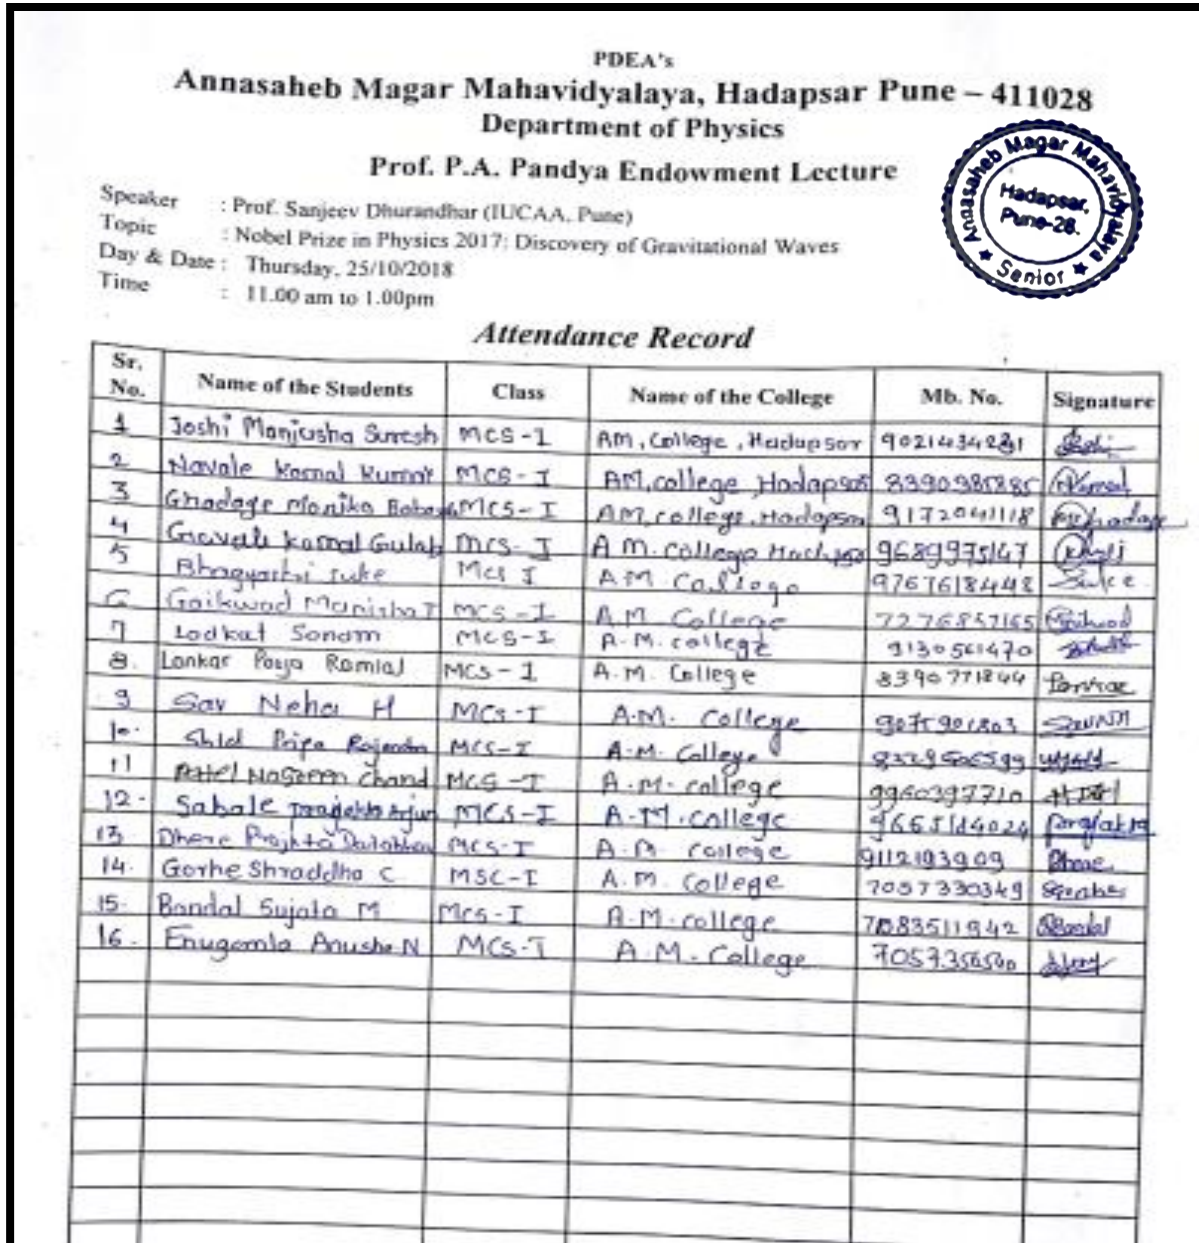 PDEA's
Annasaheb Magar Mahavidyalaya, Hadapsar Pune – 411028
Department of Physics
Prof. P.A. Pandya Endowment Lecture
Annasaheb Magar Mahavidyalaya ★ Senior ★
Hadapsar,
Pune-28.
Speaker : Prof. Sanjeev Dhurandhar (IUCAA, Pune)
Topic : Nobel Prize in Physics 2017: Discovery of Gravitational Waves
Day & Date : Thursday, 25/10/2018
Time : 11.00 am to 1.00pm
Attendance Record
Sr. No. Name of the Students Class Name of the College Mb. No. Signature
1 Joshi Manjusha Suresh MCS-I AM, College, Hadapsar
2 Navale Komal Kumar MCS-I AM, college, Hadapsar 8390985885
3 Ghadage Monika MCS-I AM, college, Hadapsar 9172041118
4 Gavali Komal Gulab MCS-I A M. College 9689975147
5 Bhagyashri MCS I A M. College 9767618448
6 Gaikwad Manisha T MCS-I A.M College 7276857165
7 Lodkat Sonam MCS-I A.M. college 9130561470
8. Lonkar Ramlal MCS-I A.M. College 8390771844
9 Sav Neha H MCS-I A.M. College
10. Priya Rajendra MCS-I A.M. College
11 Patel Nasreen Chand MCS-I A.M. college 9960397710
12. Sabale MCS-I A.M. college
13 Dhere MCS-I A.M. college 9112193909
14. Gorhe Shraddha C MSC-I A.M. College 7057330349
15. Bandal Sujata M MCS-I A.M. college
16. Enugomla Anusha N MCS-I A.M. College